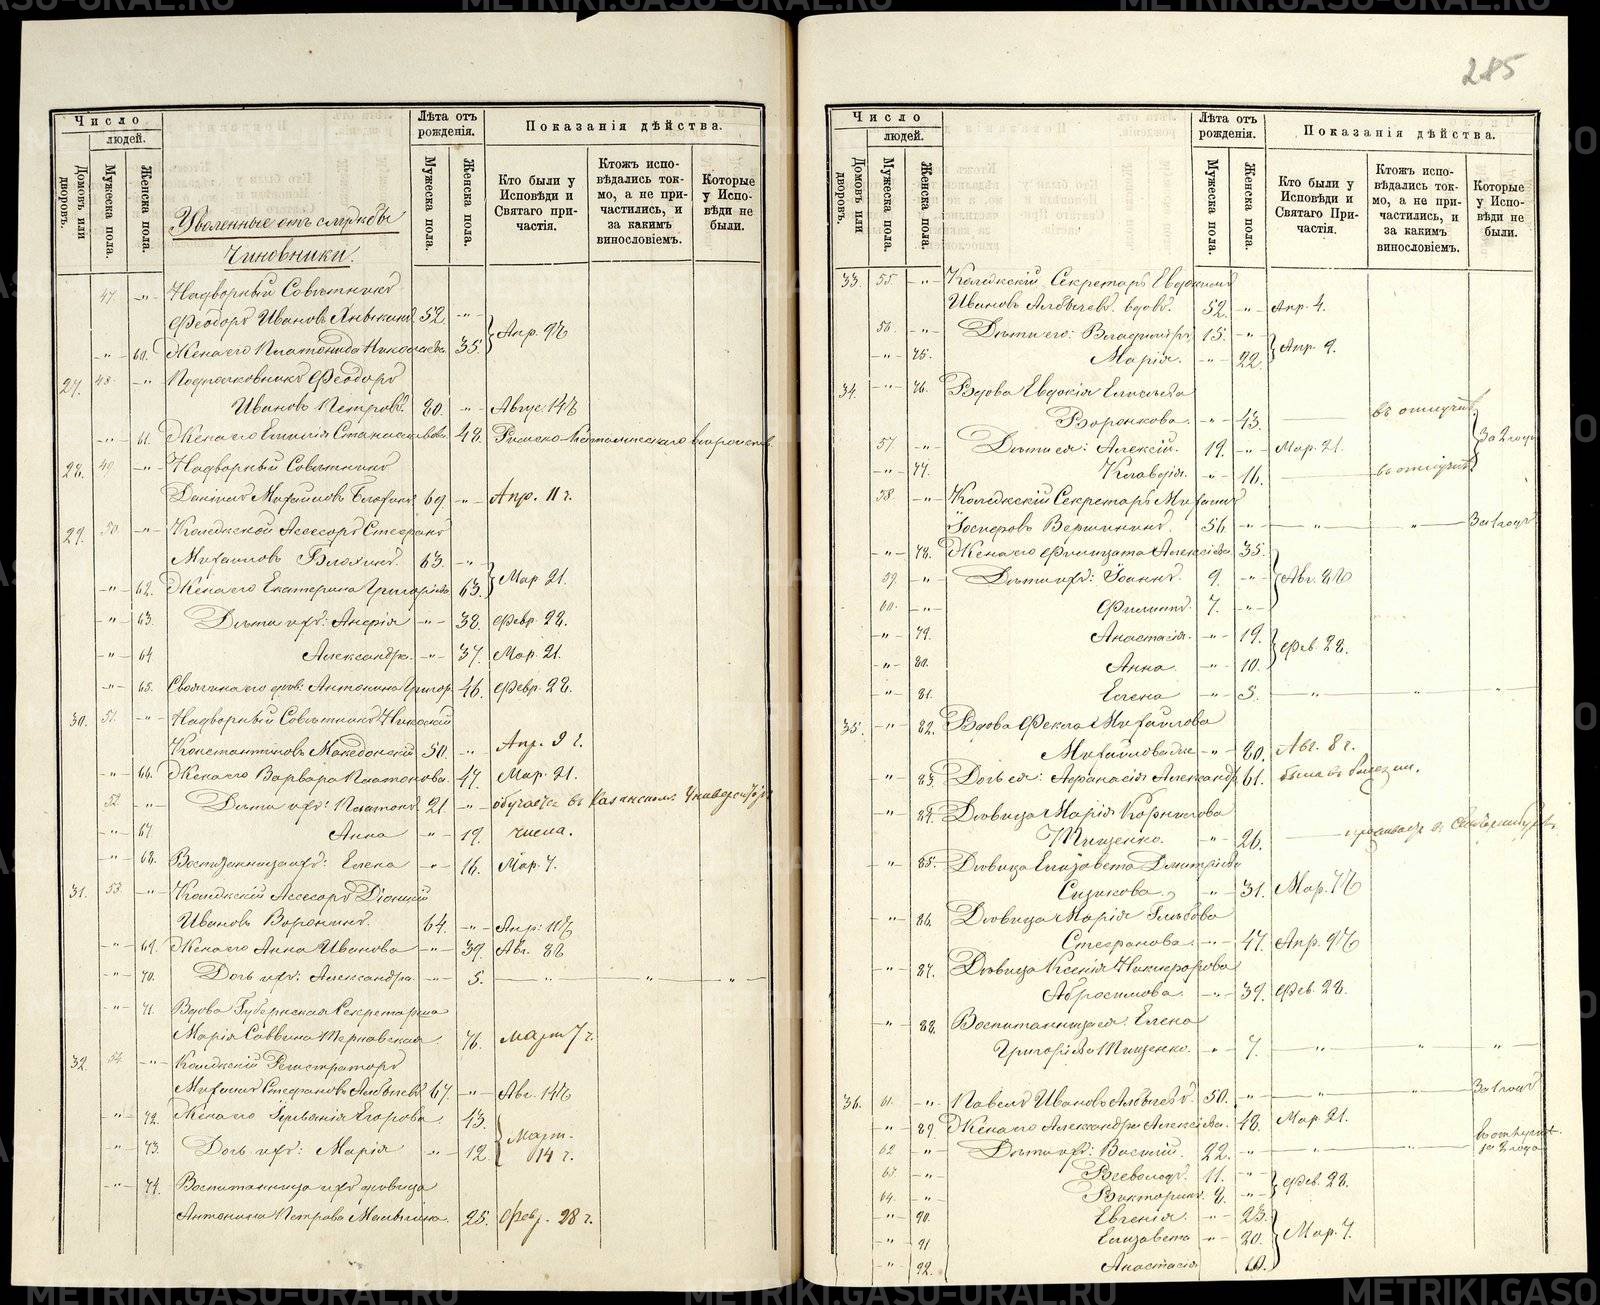 285
Число
людей.
Домовъ или дворовъ.
Мужеска пола.
Женска пола.
Лѣта отъ рожденія.
Мужеска пола.
Женска пола.
Показанія дѣйства.
Кто были у Исповѣди и Святаго причастія.
Ктожъ исповѣдались токмо, а не причастились, и за какимъ винословіемъ.
Которые у Исповѣди не были.
Уволенные отъ службы
Чиновники.
47. -"- Надворный Совѣтникъ
Ѳеодоръ Ивановъ 52. -"-
-"- 60. Жена его Платонида Николаева 35. Апр. 9го
27. 48. -"- Подполковникъ Ѳеодоръ
Ивановъ Петровъ. 80. -"- Авгус. 14го
-"- 61. Жена его Емилія Станиславов. 48. Римско-Католическаго
28. 49. -"- Надворный Совѣтникъ
Даніилъ Михаиловъ 69. -"- Апр. 11 г.
29. 50. -"- Коллежскій Ассесоръ Стефанъ
Михаиловъ Блохинъ. 63. -"-
-"- 62. Жена его Екатерина Григорьев. 63. Мар. 21.
-"- 63. Дѣти ихъ: -"- 38. Февр. 28.
-"- 64. Александра. -"- 37. Мар. 21.
-"- 65. Антонина Григор. 46. Февр. 28.
30. 51. -"- Надворный Совѣтникъ Николай
Константиновъ Македонскій 50. -"- Апр. 9 г.
-"- 66. Жена его Варвара Платонова. 47. Мар. 21.
52. -"- Дѣти ихъ: Платонъ. 21. -"- обучается въ Казанскомъ Университ.
-"- 67. Анна -"- 19. числа.
-"- 68. Воспитанница ихъ: Елена -"- 16. Мар. 7.
31. 53. -"- Коллежскій Ассесоръ Діонисій
Ивановъ Воронинъ. 64. -"- Апр. 11го
-"- 69. Жена его Анна Иванова -"- 39. Авг. 8го
-"- 70. Дочь ихъ: Александра. -"- 5. -"- -"- -"-
-"- 71. Вдова Губернская Секретарша
Марія Саввина Терновская 76. Март 7 г.
32. 54. -"- Коллежскій Регистраторъ
Михаилъ Стефановъ 67. -"- Авг. 14го
-"- 72. Жена его Егорова 43.
-"- 73. Дочь ихъ: Марія -"- 12. Март. 14 г.
-"- 74. Воспитанница ихъ дѣвица
Антонина Петрова 25. Февр. 28 г.
Число
людей.
Домовъ или дворовъ.
Мужеска пола.
Женска пола.
Лѣта отъ рожденія.
Мужеска пола.
Женска пола.
Показанія дѣйства.
Кто были у Исповѣди и Святаго Причастія.
Ктожъ исповѣдались токмо, а не причастились, и за какимъ винословіемъ.
Которые у Исповѣди не были.
33. 55. -"- Коллежскій Секретарь Евдокимъ
Ивановъ вдовъ. 52. -"- Апр. 4.
56. -"- Дѣти его: Владиміръ. 15. -"-
-"- 75. Марія. -"- 22. Апр. 9.
34. -"- 76. Вдова Евдокія
Воронкова. -"- 43. въ отлучкѣ
57. -"- Дѣти ея: Алексій. 19. -"- Мар. 21. За 2 года
-"- 77. Клавдія. -"- 16. въ отлучкѣ
58. -"- Коллежскій Секретарь Михаилъ
Вершининъ. 56. -"- -"- -"- За 1 годъ
-"- 78. Жена его Алексѣева 35.
59. -"- Дѣти ихъ: Іоаннъ. 9. -"- Авг. 8го
60. -"- Филиппъ. 7. -"-
-"- 79. Анастасія. -"- 19.
-"- 80. Анна. -"- 10. Фев. 28.
-"- 81. Елена -"- 5. -"- -"- -"-
35. -"- 82. Вдова Ѳекла Михайлова
-"- 80. Авг. 8 г.
-"- 83. Дочь ея: Аѳанасія Александр. 61. была въ болезни.
-"- 84. Дѣвица Марія Корнилова
Тищенко. -"- 26.
-"- 85. Дѣвица Елизавета Дмитріева
Сизикова. -"- 31. Мар. 7го
-"- 86. Дѣвица Марія Глѣбова
Стефанова. -"- 47. Апр. 9го
-"- 87. Дѣвица Ксенія Никифорова
Абросимова. -"- 39. Фев. 28.
-"- 88. Воспитанница ея. Елена
Григорьева Тищенко. -"- 7. -"- -"-
36. 61. -"- Павелъ Ивановъ 50. -"- -"- За 1 годъ
-"- 89. Жена его Александра Алексѣева. 48. Мар. 21.
62. -"- Дѣти ихъ: Василій. 22. -"- -"- -"- за 2 года
63. -"- Всеволодъ. 11. -"-
64. -"- Викторинъ. 8. -"- Фев. 28.
-"- 90. Евгенія. -"- 23.
-"- 91. Елизавета -"- 20. Мар. 7.
-"- 92. Анастасія